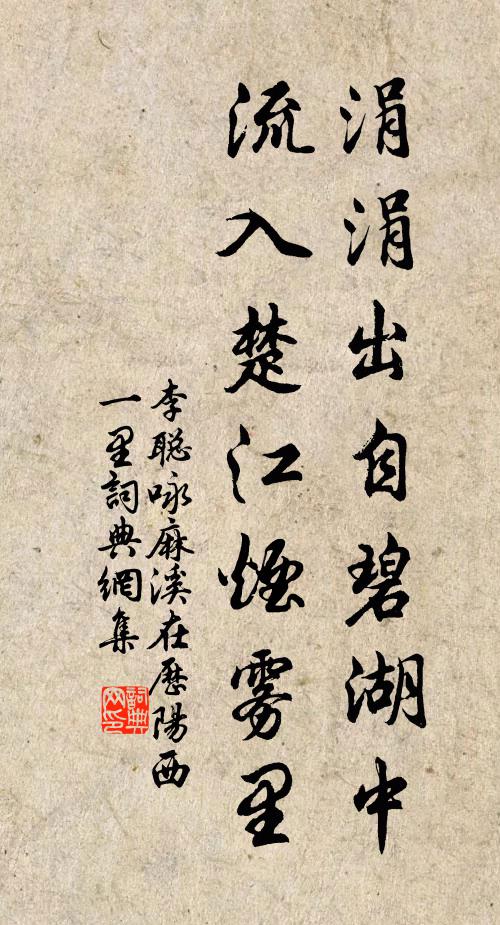 涓涓出自碧湖中
流入楚江煙雾里
李聪咏麻溪在歷陽西
一里詞典網集
詞典
网印